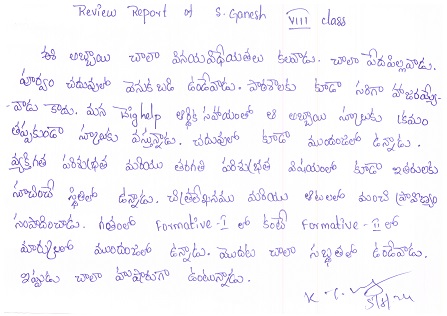 Review Report of S. Ganesh VIII class
ఈ అబ్బాయి చాలా వినయవిధేయతలు కలవాడు. చాలా పేదపిల్లవాడు.
పూర్వం చదువులో వెనుకబడి ఉండేవాడు. పాఠశాలకు కూడా సరిగా హాజరయ్యే-
-వాడు కాదు. మన Bighelp ఆర్థిక సహాయంతో ఆ అబ్బాయి స్కూలుకు క్రమం
తప్పకుండా స్కూలుకు వస్తున్నాడు. చదువులో కూడా ముందంజలో ఉన్నాడు.
వ్యక్తిగత పరిశుభ్రత మరియు తరగతి పరిశుభ్రత విషయంలో కూడా ఇతరులకు
సూచించే స్థితిలో ఉన్నాడు. చిత్రలేఖనము మరియు ఆటలలో మంచి ప్రావీణ్యం
సంపాదించాడు. గతంలో Formative-I లో కంటే Formative-II లో
మార్కులలో ముందంజలో ఉన్నాడు. మొదట చాలా సబ్ధతలో ఉండేవాడు.
ఇప్పుడు చాలా హుషారుగా ఉంటున్నాడు.